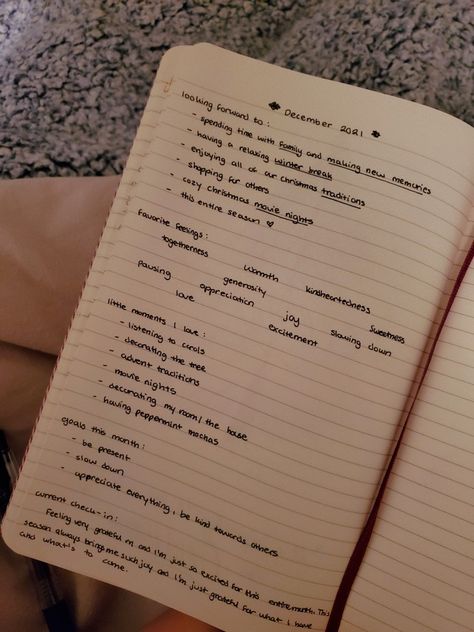 December 2021
looking forward to:
- spending time with family and making new memories
- having a relaxing winter break
- enjoying all of our Christmas traditions
- shopping for others
- cozy christmas movie nights
- this entire season ♡
favorite feelings:
togetherness warmth kindheartedness sweetness
pausing generosity joy slowing down
love appreciation excitement
little moments I love:
- listening to carols
- decorating the tree
- advent traditions
- movie nights
- decorating my room/the house
- having peppermint mochas
goals this month:
- be present
- slow down
- appreciate everything, be kind towards others
current check-in:
feeling very grateful rn and i'm just so excited for this entire month. This
season always brings me such joy and I'm just grateful for what I have
and what's to come.